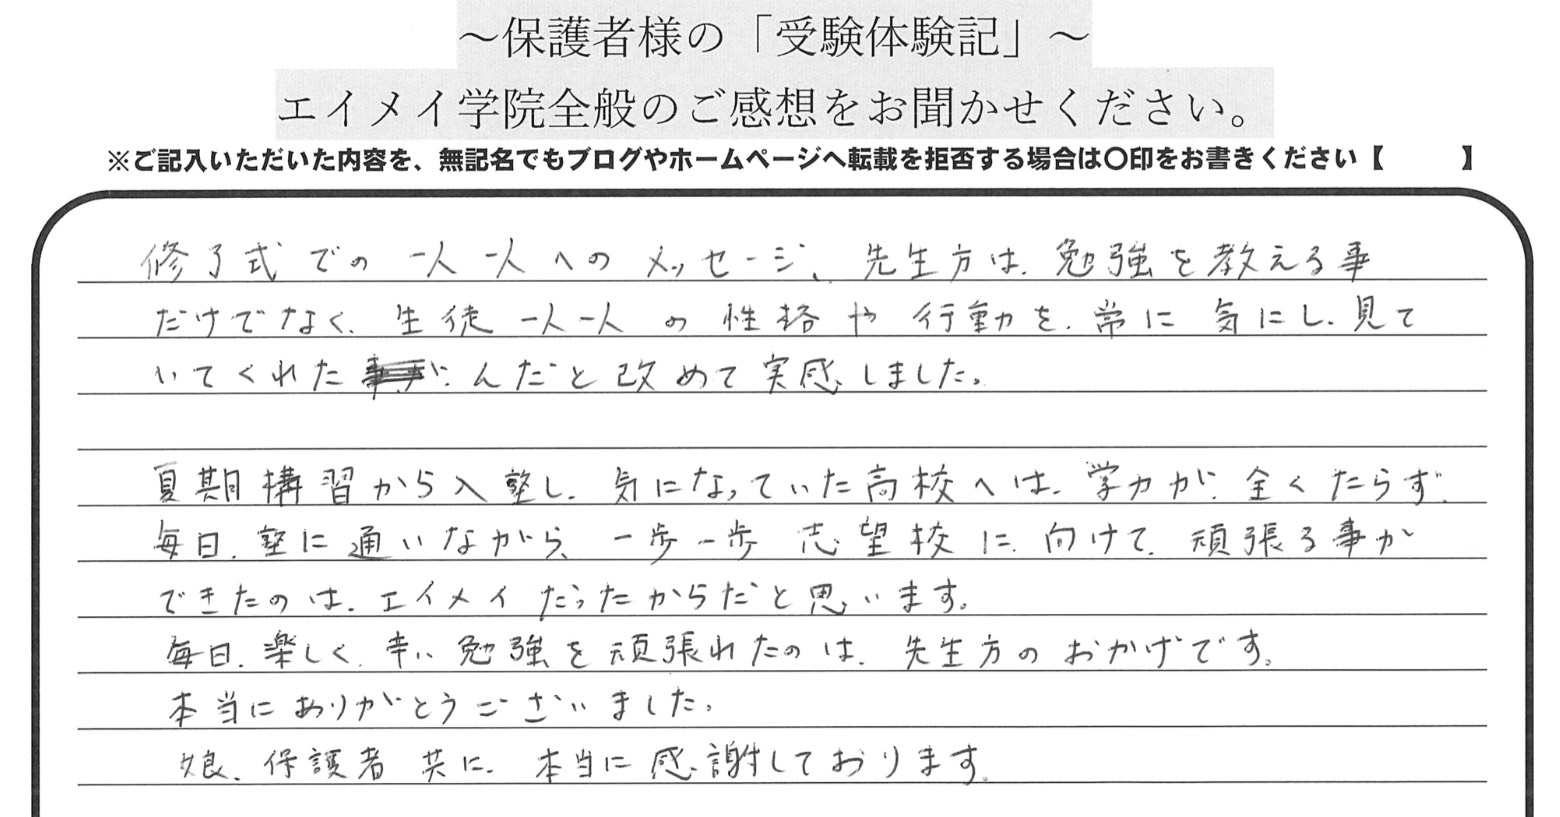 ～保護者様の「受験体験記」～
エイメイ学院全般のご感想をお聞かせください。
※ご記入いただいた内容を、無記名でもブログやホームページへ転載を拒否する場合は〇印をお書きください【　　】
修了式での一人一人へのメッセージ、先生方は、勉強を教える事
だけでなく、生徒一人一人の性格や行動を、常に気にし、見て
いてくれたんだと改めて実感しました。
夏期構習から入塾し、気になっていた高校へは、学力が、全くたらず、
毎日、塾に通いながら、一歩一歩志望校に、向けて、頑張る事が
できたのは、エイメイだったからだと思います。
毎日、楽しく、辛い勉強を頑張れたのは、先生方のおかげです。
本当にありがとうございました。
娘、保護者共に、本当に感謝しております。